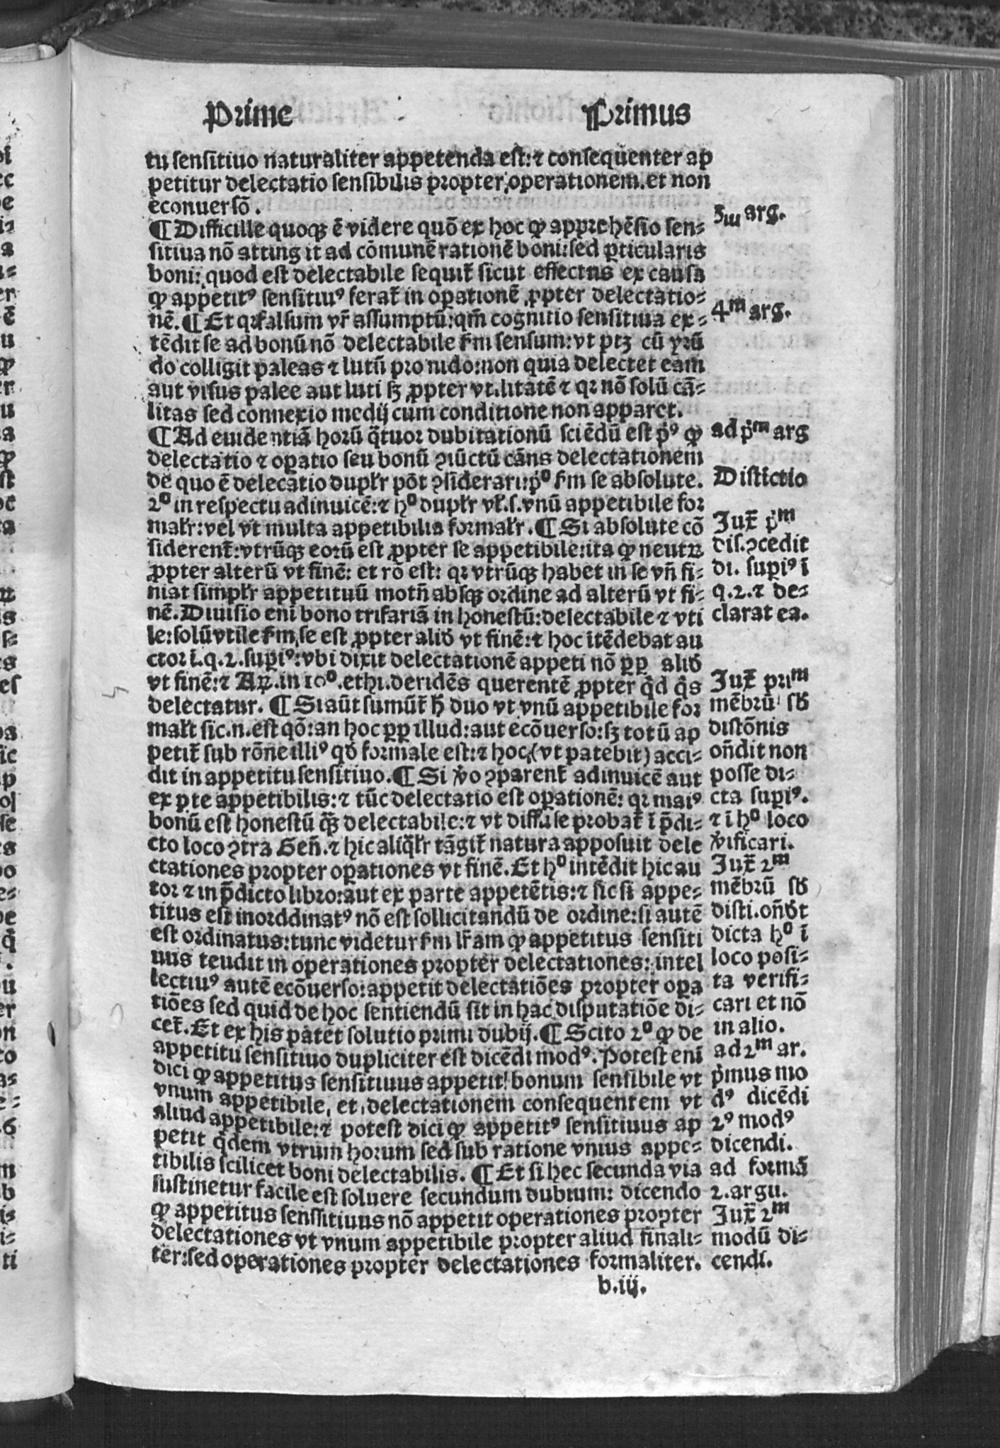 Prime Primus
tu sensitiuo naturaliter appetenda est: ⁊ consequenter ap
petitur delectatio sensibilis propter operationem. et non
econuersō.
¶ Difficille quoqꝫ ē videre quō ex hoc ꝙ apprehēsio sen-
sitiua nō atting it ad cōmunē rationē boni: sed ꝑticularis
boni: quod est delectabile sequit̃ sicut effectus ex causa
ꝙ appetitꝰ sensitiuꝰ ferat̃ in oꝑationē ꝓpter delectatio-
nē. ¶ Et qꝛ falsum vr̃ assumptũ: qm̃ cognitio sensitiua ex-
tēdit se ad bonũ nō delectabile ẜm sensum: vt ptꝫ cũ yrũ
do colligit paleas ⁊ lutũ pro nido: non quia delectet eam
aut visus palee aut luti sꝫ ꝓpter vtilitatē ⁊ qꝛ nō solũ cā-
litas sed connexio medij cum conditione non apparet.
¶ Ad euidentiā horũ q̃tuor dubitationũ sciēdũ est pͦ ꝙ
delectatio ⁊ oꝑatio seu bonũ ↄiũctũ cāns delectationem
de quo ē delecatio duplr̃ pōt ↄsiderari: pͦ ẜm se absolute.
2ͦ in respectu adinuicē: ⁊ hͦ duplr̃ vl̃. s. vnũ appetibile for
malr̃: vel vt multa appetibilia formalr̃. ¶ Si absolute cō
siderent̃: vtrũqꝫ eorũ est ꝓpter se appetibile: ita ꝙ neutrꝫ
ꝓpter alterũ vt finē: et rō est: qꝛ vtrũqꝫ habet in se vñ fi-
niat simplr̃ appetituũ motũ absqꝫ ordine ad alterũ vt fi-
nē. Diuisio eni bono trifariā in honestũ: delectabile ⁊ vti
le: solũ vtile ẜm se est ꝓpter aliđ vt finē: ⁊ hoc itēdebat au
ctor ĩ. q. 2. suꝑiꝰ: vbi dixit delectationē appeti nō ꝓꝑ aliđ
vt finē: ⁊ Aꝝ. in 10ͦ. ethi. deridēs querentē ꝓpter qđ q̃s
delectatur. ¶ Si aũt sumũt̃ hꝫ duo vt vnũ appetibile for
malr̃ sic. n. est qō: an hoc ꝓꝑ illud: aut ecōuerso: sꝫ totũ ap
petit̃ sub rōne illiꝰ qđ formale est: ⁊ hoc (vt patebit) acci-
dit in appetitu sensitiuo. ¶ Si ṽo ↄparent̃ adinuicē aut
ex ꝑte appetibilis: ⁊ tũc delectatio est oꝑationē: qꝛ maiꝰ
bonũ est honestũ q̃ꝫ delectabile: ⁊ vt diffuse probat̃ ĩ p̃di-
cto loco ↄtra Gen̄. ⁊ hic aliq̃lr̃ tāgit̃ natura apposuit dele
ctationes propter oꝑationes vt finē. Et hͦ intēdit hic au
tor ⁊ in p̃dicto libro: aut ex parte appetētis: ⁊ sic si appe-
titus est inorddinatꝰ nō est sollicitandũ de ordine: si autē
est ordinatus: tunc videtur ẜm lr̃am ꝙ appetitus sensiti
uus tendit in operationes propter delectationes: intel
lectiuꝰ autē ecōuerso: appetit delectatiōes propter opa
tiōes sed quid de hoc sentiendũ sit in hac disputatiōe di-
cet̃. Et ex his patet solutio primi dubij. ¶ Scito 2ͦ ꝙ de
appetitu sensitiuo dupliciter est dicēdi modꝰ. Potest eni
dici ꝙ appetitus sensitiuus appetit bonum sensibile vt
vnum appetibile, et delectationem consequentem vt
aliud appetibile: ⁊ potest dici ꝙ appetitꝰ sensitiuus ap
petit q̃dem vtrum horum sed sub ratione vnius appe-
tibilis scilicet boni delectabilis. ¶ Et si hec secunda via
sustinetur facile est soluere secundum dubium: dicendo
ꝙ appetitus senssitiuus nō appetit operationes propter
delectationes vt vnum appetibile propter aliud finali-
ter: sed operationes propter delectationes formaliter.
b. iij.
3ᵘᵐ arg.
4ᵐ arg.
ad p̃ᵐ arg
Distictio
Jux̃ p̃ᵐ
dis. ↄcedit
di. suꝑiꝰ ĩ
q. 2. ⁊ de-
clarat ea.
Jux̃ primᵐ
mēbrũ sđ
distōnis
oñdit non
posse di-
cta suꝑiꝰ.
⁊ ĩ hͦ loco
ṽificari.
Jux̃ 2ᵐ
mēbrũ sđ
disti. oñđt
dicta hͦ ĩ
loco posi-
ta verifi-
cari et nō
in alio.
ad 2ᵐ ar.
p̃mus mo
dꝰ dicēdi
2ꝰ modꝰ
dicendi.
ad formā
2. argu.
Jux̃ 2ᵐ
modũ di-
cendi.